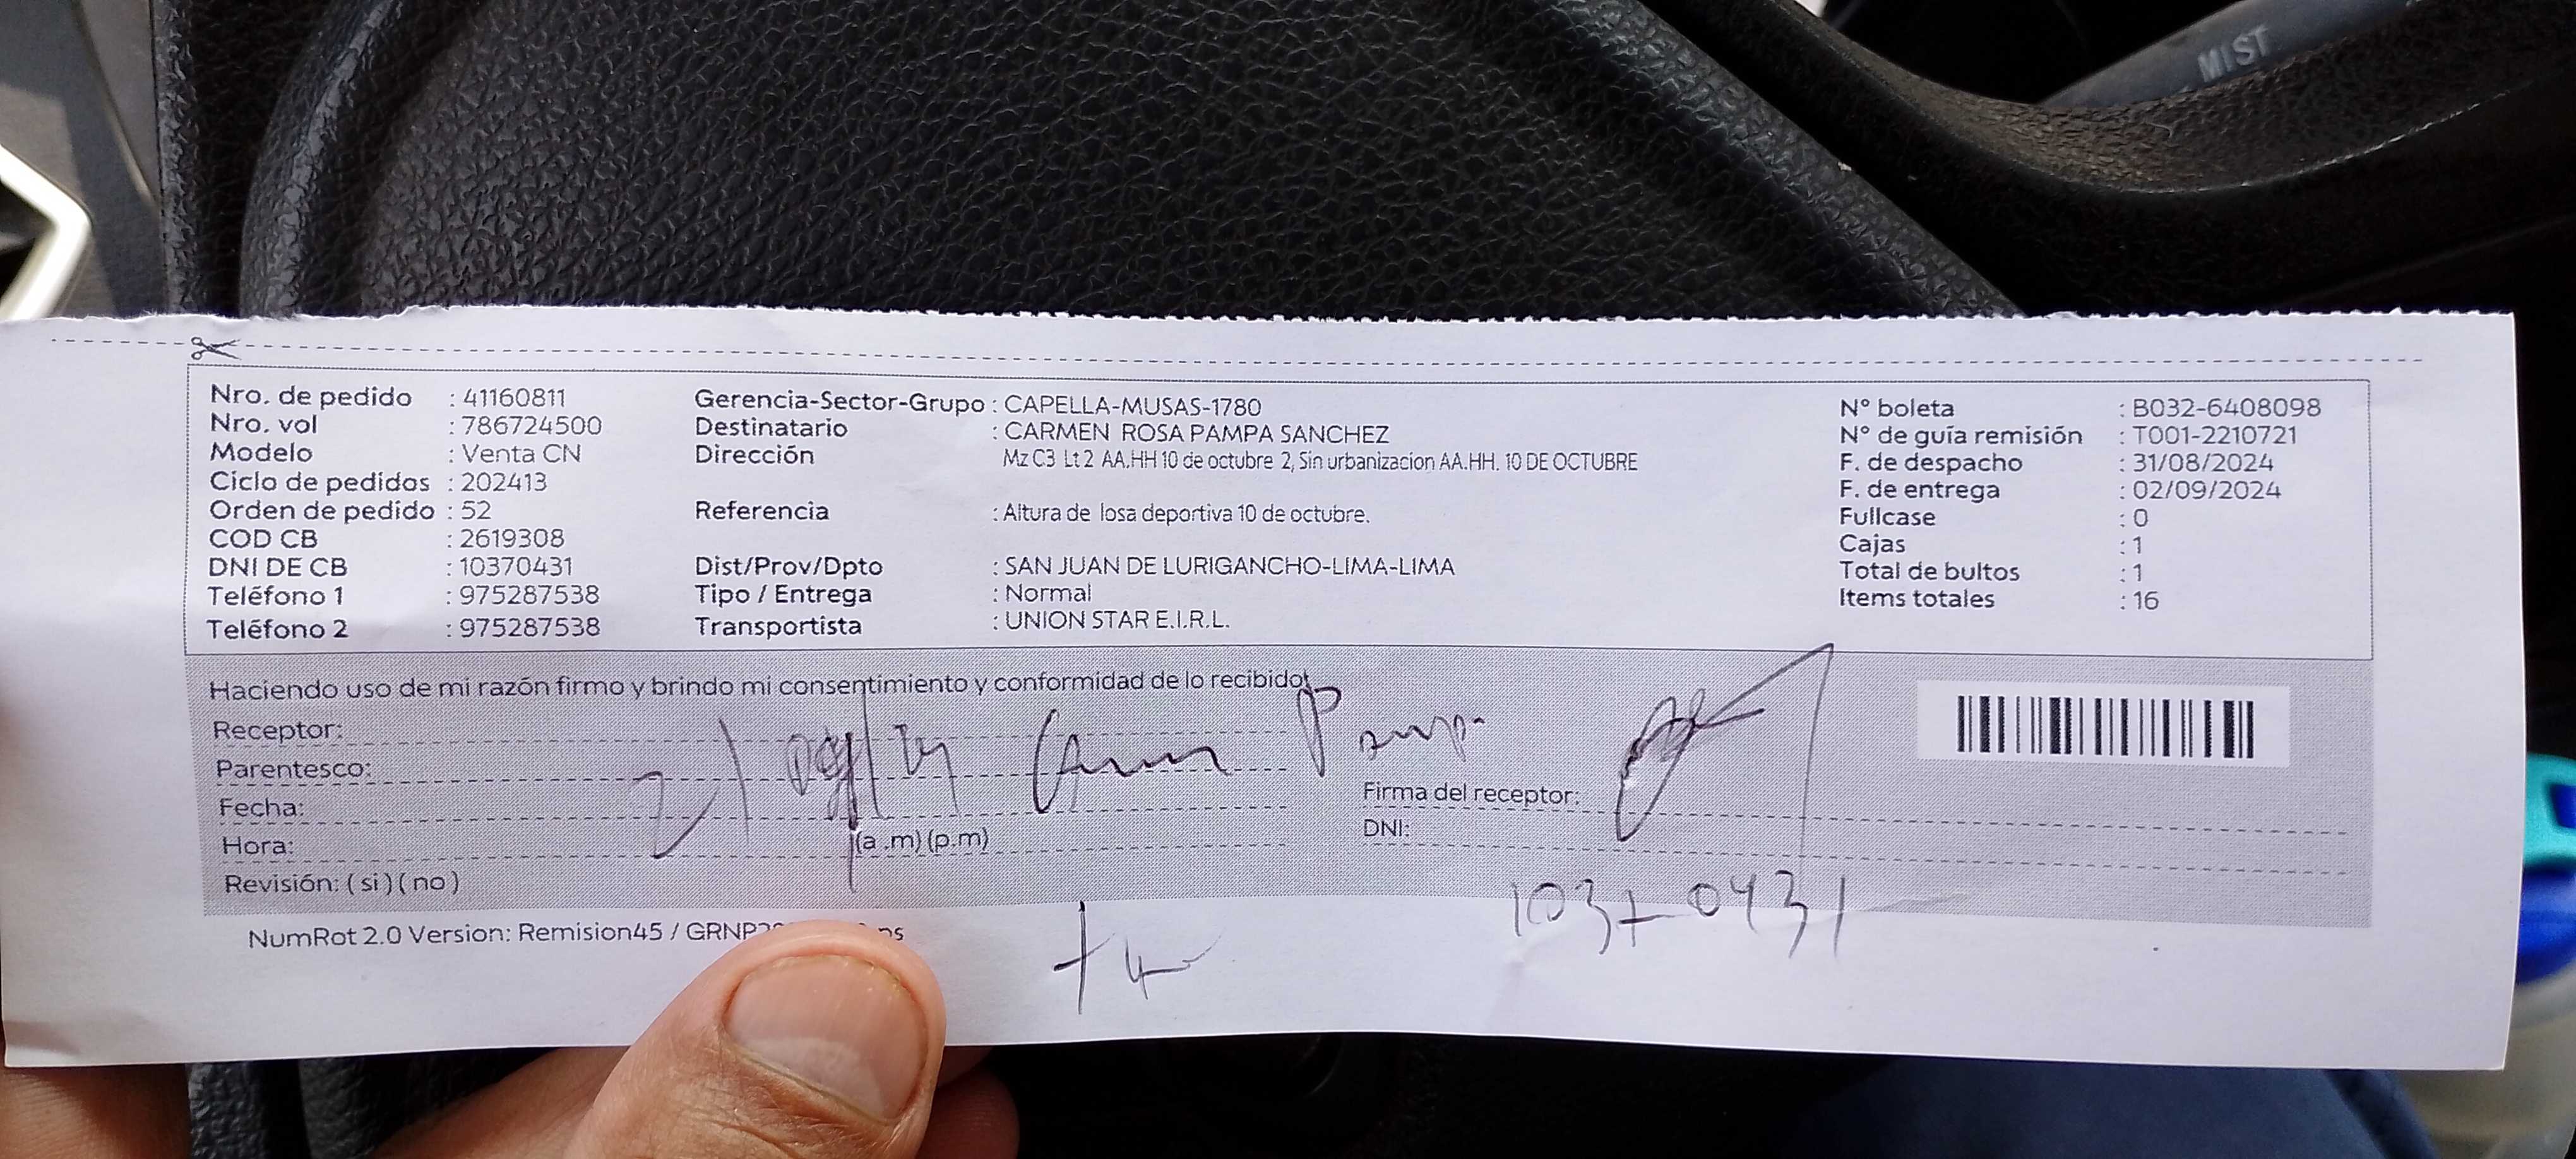 MIST
Nro. de pedido : 41160811
Nro. vol : 786724500
Modelo : Venta CN
Ciclo de pedidos : 202413
Orden de pedido : 52
COD CB : 2619308
DNI DE CB : 10370431
Teléfono 1 : 975287538
Teléfono 2 : 975287538
Gerencia-Sector-Grupo : CAPELLA-MUSAS-1780
Destinatario : CARMEN ROSA PAMPA SANCHEZ
Dirección Mz C3 Lt 2 AA.HH 10 de octubre 2, Sin urbanizacion AA.HH. 10 DE OCTUBRE
Referencia : Altura de losa deportiva 10 de octubre.
Dist/Prov/Dpto : SAN JUAN DE LURIGANCHO-LIMA-LIMA
Tipo / Entrega : Normal
Transportista : UNION STAR E.I.R.L.
N° boleta : B032-6408098
N° de guía remisión : T001-2210721
F. de despacho : 31/08/2024
F. de entrega : 02/09/2024
Fullcase : 0
Cajas : 1
Total de bultos : 1
Items totales : 16
Haciendo uso de mi razón firmo y brindo mi consentimiento y conformidad de lo recibido
Receptor:
Parentesco:
Fecha:
Hora: (a .m) (p.m)
Revisión: ( si ) ( no )
Carmen Pampa
Firma del receptor:
DNI:
10370431
NumRot 2.0 Version: Remision45 /